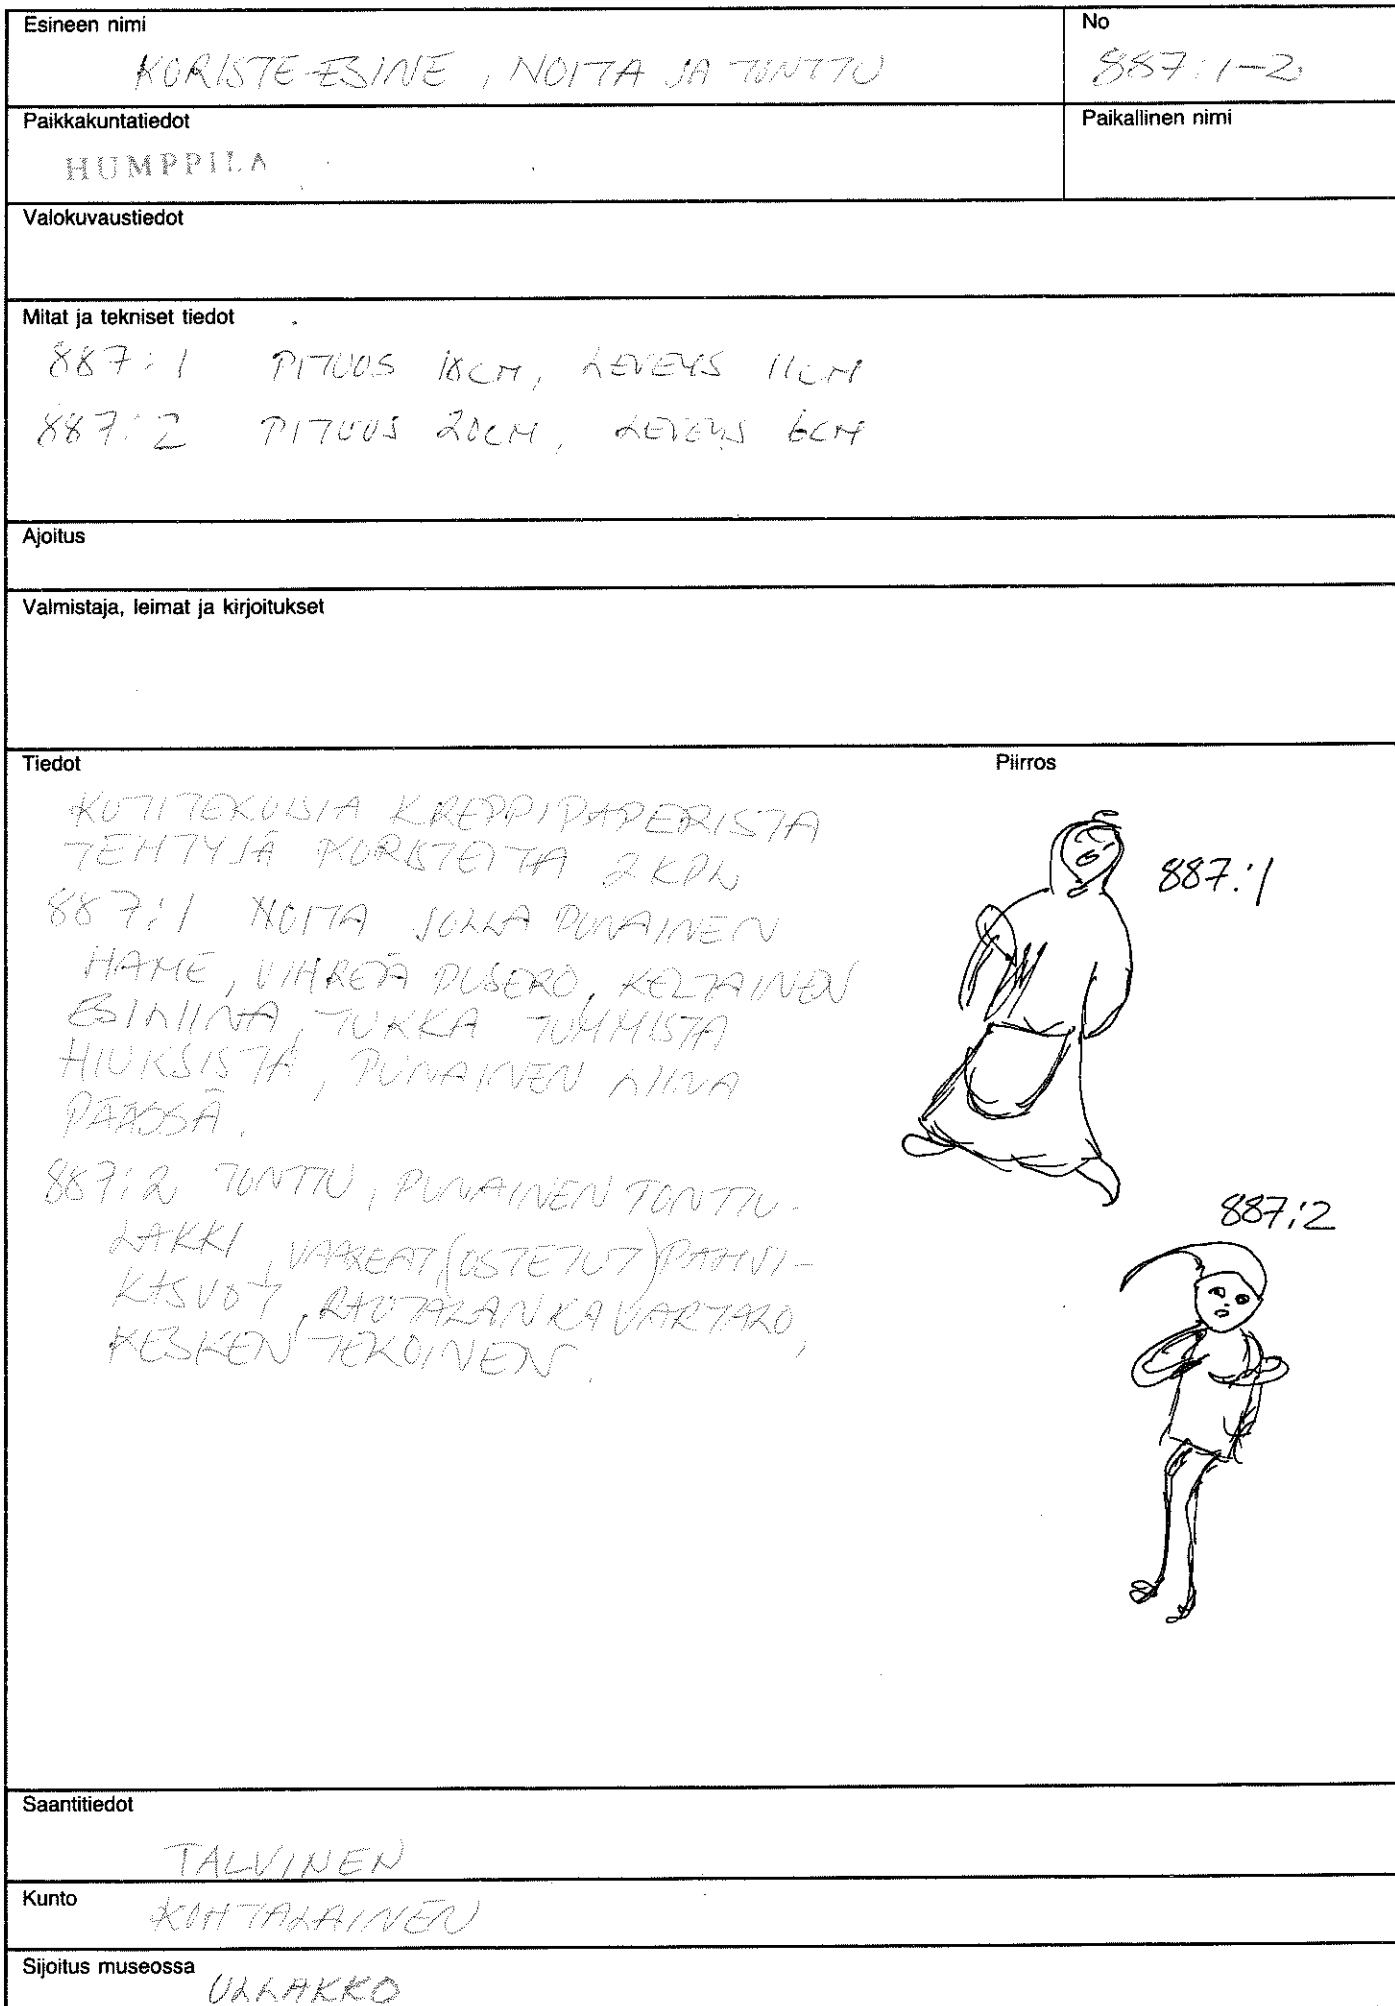 Esineen nimi
KORISTE-ESINE, NOITA JA TONTTU
No
887:1-2
Paikkakuntatiedot
HUMPPILA
Paikallinen nimi
Valokuvaustiedot
Mitat ja tekniset tiedot
887:1 PITUUS 18CM, LEVEYS 11CM
887:2 PITUUS 20CM, LEVEYS 6CM
Ajoitus
Valmistaja, leimat ja kirjoitukset
Tiedot
KOTITEKOISIA KREPPIPAPERISTA
TEHTYJÄ KORISTEITA 2 KPL
887:1 NOITA JOLLA PUNAINEN
HAME, VIHREÄ PUSERO, KELTAINEN
ESILIINA, TUKKA TUMMISTA
HIUKSISTA, PUNAINEN LIINA
PÄÄSSÄ.
887:2 TONTTU, PUNAINEN TONTTU-
LAKKI, VAALEAT (OSTETUT) PAHVI-
KASVOT, RAUTALANKAVARTALO,
KESKENTEKOINEN.
Piirros
887:1
887:2
Saantitiedot
TALVINEN
Kunto
KOHTALAINEN
Sijoitus museossa
ULLAKKO